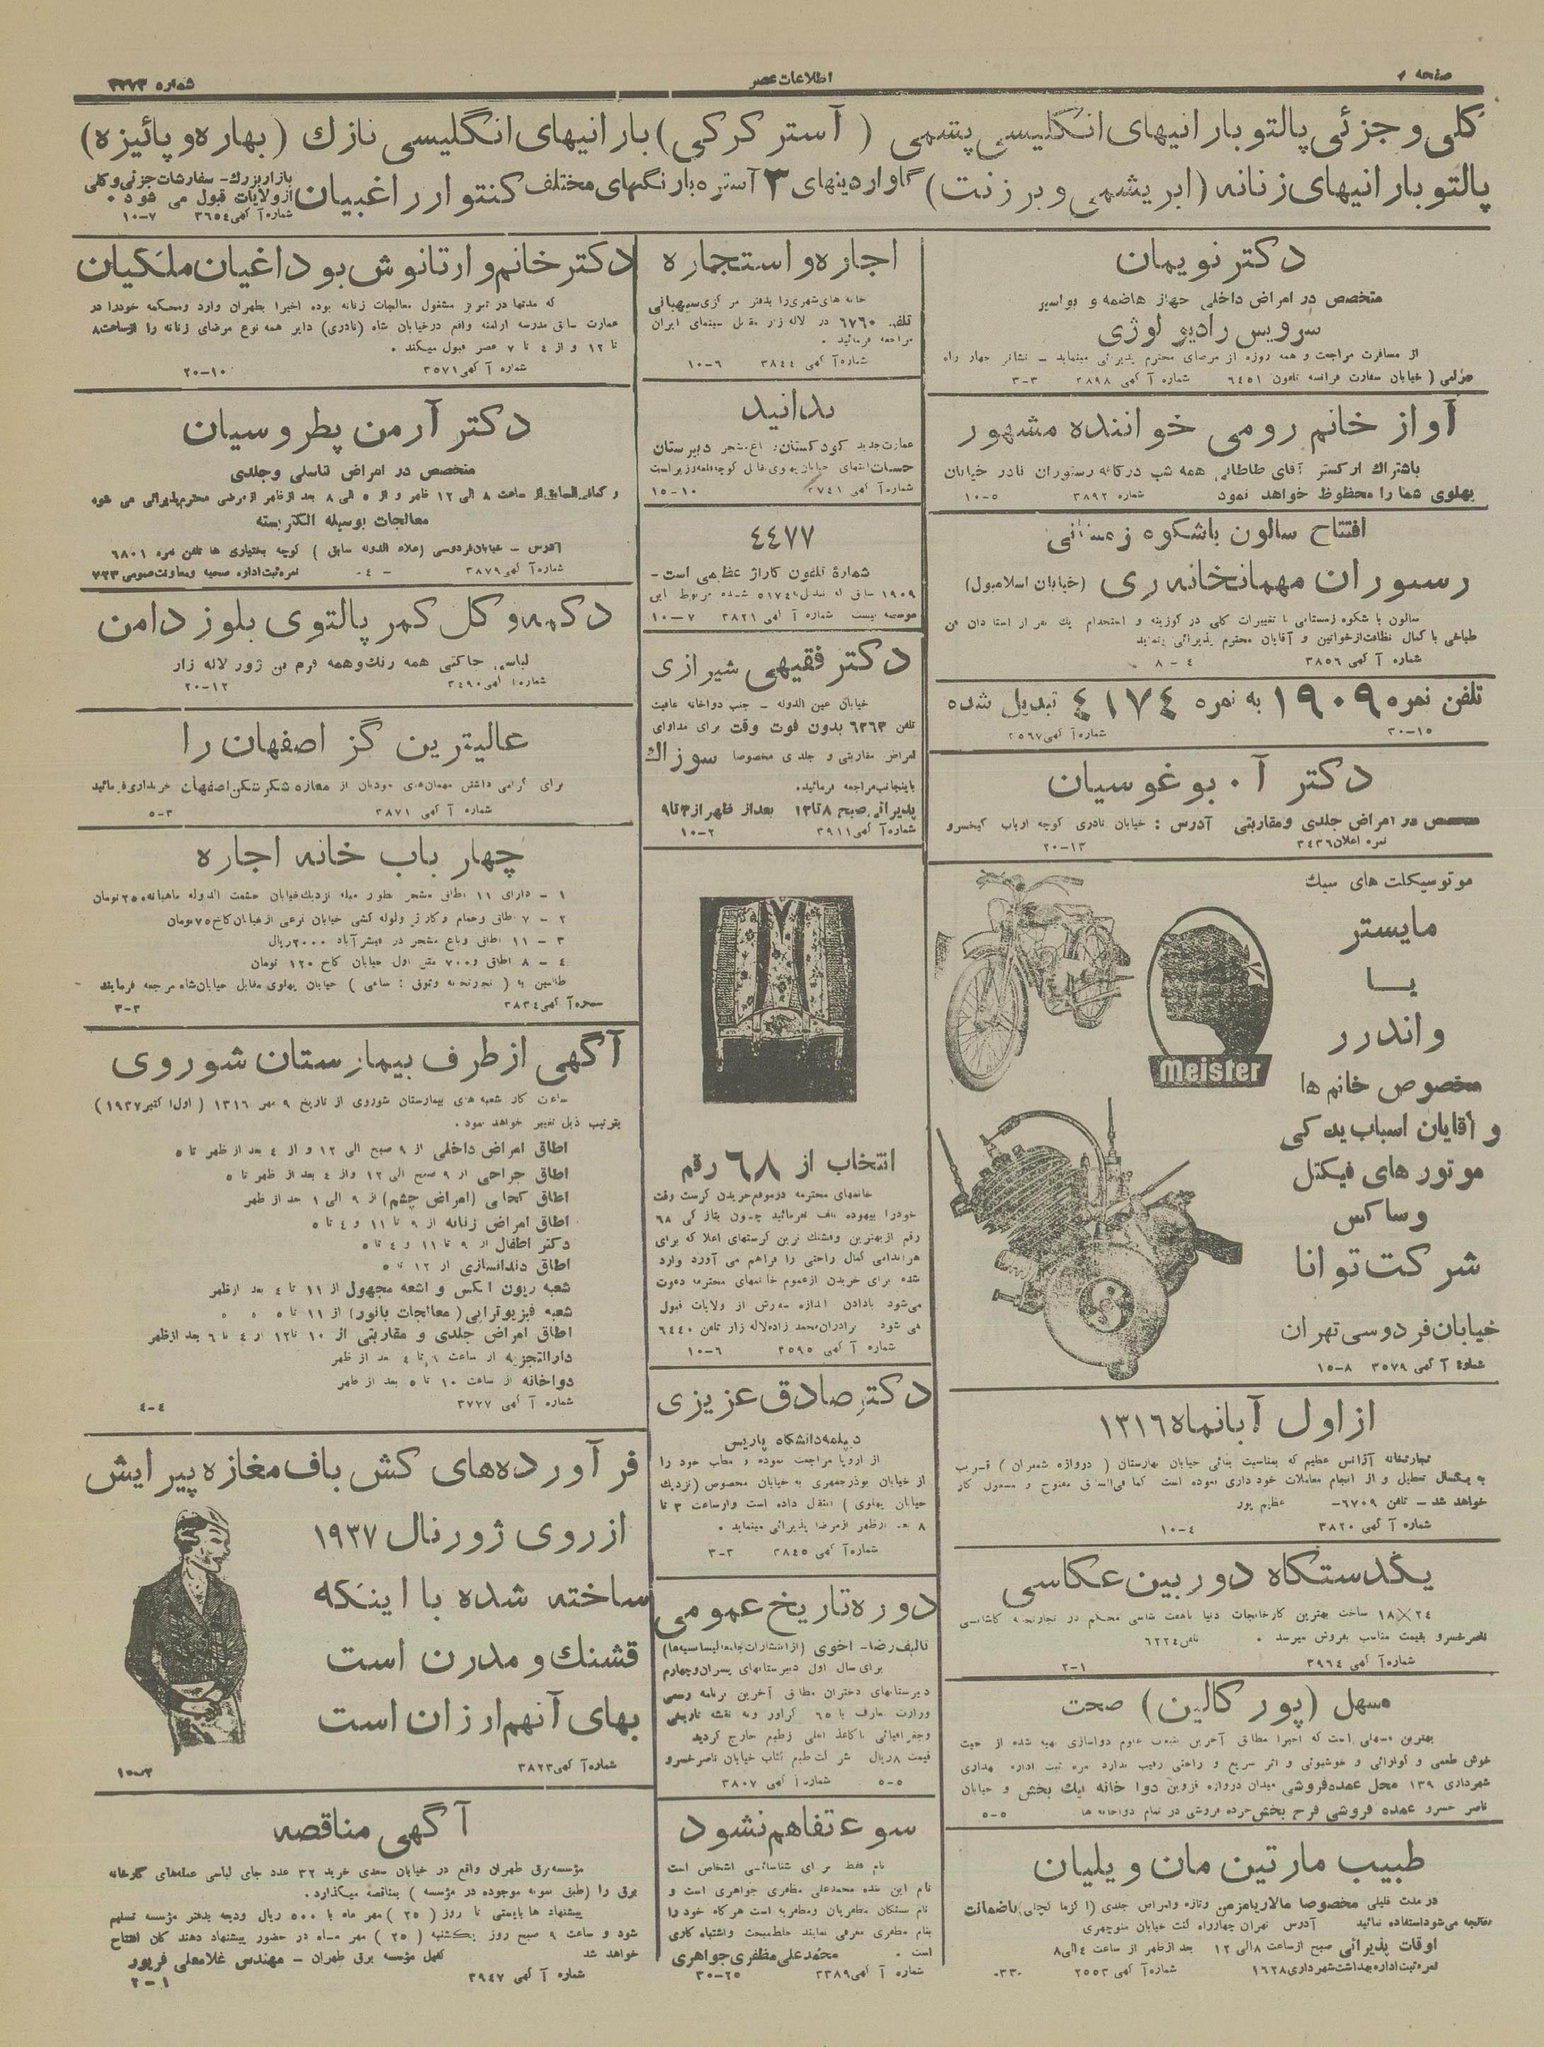 صفحه
اطلاعات عصر
شماره ۳۲۷۳
کلی و جزئی پالتو بارانیهای انگلیسی پشمی ( آستر کرکی ) بارانیهای انگلیسی نازک ( بهاره و پائیزه )
پالتو بارانیهای زنانه ( ابریشمی و برزنت ) گاواردینهای ۳ آستره بارنگهای مختلف کنتوار راغبیان
بازار بزرگ - سفارشات جزئی و کلی
از ولایات قبول می شود .
شماره آگهی ۳۶۵۴ ۷-۱۰
دکتر نویمان
متخصص در امراض داخلی جهاز هاضمه و بواسیر
سرویس رادیو لوژی
از مسافرت مراجعت و همه روزه از مرضای محترم پذیرائی مینماید - نشانی چهار راه
( خیابان سفارت فرانسه تلفون ۶۴۵۱ شماره آگهی ۳۸۹۸ ۳-۳
آواز خانم رومی خواننده مشهور
باشتراک ارکستر آقای طاطائی همه شب در کافه رستوران نادر خیابان
پهلوی شما را محظوظ خواهد نمود شماره ۳۸۹۲ ۵-۱۰
افتتاح سالون باشکوه زمستانی
رستوران مهمانخانه ری (خیابان اسلامبول)
سالون با شکوه زمستانی با تغییرات کلی در و استخدام یک نفر از استادان فن
طباخی با کمال نظافت از خواتین و آقایان محترم پذیرائی مینماید
شماره آگهی ۳۸۵۶ ۴-۸
تلفن نمره ۱۹۰۹ به نمره ۴۱۷۴ تبدیل شده
شماره آگهی ۳۵۶۷ ۱۵-۳۰
دکتر آ . بوغوسیان
متخصص در امراض جلدی و مقاربتی آدرس : خیابان نادری کوچه ارباب کیخسرو
نمره اعلان ۳۴۳۶ ۱۳-۲۰
موتوسیکلت های سبک
مایستر
یا
واندرر
مخصوص خانم ها
و آقایان اسباب یدکی
موتور های فیکتل
وساکس
شرکت توانا
خیابان فردوسی تهران
شماره آگهی ۳۵۷۹ ۸-۱۵
meister
از اول آبانماه ۱۳۱۶
تجارتخانه آژانس عظیم که بمناسبت بنائی خیابان بهارستان ( دروازه شمیران ) قریب
به یکسال تعطیل و از انجام معاملات خود داری نموده است کما فی السابق مفتوح و مشغول کار
خواهد شد - تلفن ۶۷۰۹- عظیم پور
شماره آگهی ۳۸۲۰ ۴-۱۰
یکدستگاه دوربین عکاسی
۱۸×۲۴ ساخت بهترین کارخانجات دنیا باهفت شاسی محکم در تجارتخانه کاشانی
ناصرخسرو بقیمت مناسب بفروش میرسد . تلفن ۶۲۲۴
شماره آگهی ۳۹۶۴ ۱-۲
مسهل (پور کالین) صحت
بهترین مسهلی است که اخیرا مطابق آخرین علوم دواسازی تهیه شده از حیث
خوش طعمی و گوارائی و خوشبوئی و اثر سریع و راحتی رقیب ندارد نمره ثبت اداره بهداری
شهرداری ۱۳۹ محل عمده فروشی میدان دروازه قزوین دوا خانه نیک بخش و خیابان
ناصر خسرو عمده فروشی فرح بخش خرده فروشی در تمام دواخانه ها ۵-۵
طبیب مارتین مان ویلیان
در مدت قلیلی مخصوصا مالاریا مزمن وتازه وامراض جلدی (اگزما کچلی) باضمانت
معالجه می‌شود استفاده نمائید آدرس تهران چهارراه کنت خیابان منوچهری
اوقات پذیرائی صبح از ساعت ۸ الی ۱۲ بعد از ظهر از ساعت ۴ الی ۸
نمره ثبت اداره بهداشت شهرداری ۱۶۲۸ شماره آگهی ۲۵۵۳
اجاره و استجاره
خانه های شهری را بدفتر مرکزی سیهبانی
تلفن ۶۷۶۰ در لاله زار مقابل سینمای ایران
مراجعه فرمائید .
شماره آگهی ۳۸۴۴ ۶-۱۰
بدانید
عمارت جدید کودکستان و باغ مشجر دبیرستان
شماره آگهی ۳۷۴۱ ۱۰-۱۵
۴۴۷۷
شمارهٔ تلفون گاراژ عظیمی است -
۱۹۰۹ سابق که تبدیل به ۵۱۷۴ شده مربوط باین
موسسه نیست شماره آگهی ۳۸۲۱ ۷-۱۰
دکتر فقیهی شیرازی
خیابان عین الدوله - جنب دواخانه عافیت
تلفن ۶۲۶۳ بدون فوت وقت برای مداوای
امراض مقاربتی و جلدی مخصوصا سوزاک
باینجانب مراجعه فرمائید.
پذیرائی صبح ۸ تا ۱۲ بعد از ظهر از ۳ تا ۹
شماره آگهی ۳۹۱۱ ۲-۱۰
انتخاب از ۶۸ رقم
خانمهای محترمه درموقع خریدن کرست وقت
خودرا بیهوده تلف نفرمائید چون بتازگی ۶۸
رقم از بهترین وقشنگ ترین کرستهای اعلا که برای
هر اندامی کمال راحتی را فراهم می آورد وارد
شده برای خریدن از عموم خانمهای محترمه دعوت
می‌شود بادادن اندازه سفارش از ولایات قبول
می شود برادران محمد زاده لاله زار تلفن ۶۴۴۰
شماره آگهی ۳۵۹۵ ۶-۱۰
دکتر صادق عزیزی
دیپلمه دانشگاه پاریس
از اروپا مراجعت نموده و مطب خود را
از خیابان بوذرجمهری به خیابان مخصوص (نزدیک
خیابان پهلوی ) انتقال داده است و از ساعت ۳ تا
۸ بعد از ظهر از مرضا پذیرائی مینماید .
شماره آگهی ۳۸۴۵ ۳-۳
دوره تاریخ عمومی
تالیف رضا - اخوی (از انتشارات جامعه لیسانسیه‌ها)
برای سال اول دبیرستانهای پسران و چهارم
دبیرستانهای دختران مطابق آخرین برنامه رسمی
وزارت معارف با ۶۵ گراور و نقشه تاریخی
وجغرافیائی با کاغذ اعلی از طبع خارج گردید
قیمت ۸ ریال شرکت طبع کتاب خیابان ناصر خسرو
شماره آگهی ۳۸۰۷ ۵-۵
سوء تفاهم نشود
نام فقط برای شناسائی اشخاص است
نام این بنده محمدعلی مظفری جواهری است و
نام بستگان مظفریان ومظفریه است هر گاه خود را
بنام مظفری معرفی نمایند خلط مبحث واشتباه کاری
است . محمدعلی مظفری جواهری
شماره آگهی ۳۳۸۹ ۲۵-۳۰
دکتر خانم وارتانوش بوداغیان ملکیان
که مدتها در تبریز مشغول معالجات زنانه بوده اخیرا بطهران وارد ومحکمه خودرا در
عمارت سابق مدرسه ارامنه واقع در خیابان شاه (نادری) دایر همه نوع مرضای زنانه را از ساعت ۸
تا ۱۲ و از ۴ تا ۷ عصر قبول میکند .
شماره آگهی ۳۵۷۱ ۱۰-۲۰
دکتر آرمن پطروسیان
متخصص در امراض تناسلی وجلدی
و کمافی السابق از ساعت ۸ الی ۱۲ ظهر و از ۵ الی ۸ بعد از ظهر از مرضی محترم پذیرائی می شود
معالجات بوسیله الکتریسته
آدرس - خیابان فردوسی (علاء الدوله سابق ) کوچه بختیاری ها تلفن نمره ۶۸۰۱
شماره آگهی ۳۸۷۹ نمره ثبت اداره صحیه ومعاونت عمومی ۷۲۳
دکمه و گل کمر پالتوی بلوز دامن
لباس خاکتی همه رنگ وهمه فرم ژور لاله زار
شماره آگهی ۳۴۹۰ ۱۲-۲۰
عالیترین گز اصفهان را
برای گرامی داشتن مهمان‌های خودتان از مغازه شکرشکن اصفهان خریداری فرمائید
شماره آگهی ۳۸۷۱ ۳-۵
چهار باب خانه اجاره
۱ - دارای ۱۱ اطاق مشجر بطور مبله نزدیک خیابان حشمت الدوله ماهیانه ۲۵۰ تومان
۲ - ۷ اطاق وحمام وگاراژ ولوله کشی خیابان فرعی از خیابان کاخ ۷۵ تومان
۳ - ۱۱ اطاق وباغ مشجر در قیشرآباد ۲۰۰۰ ریال
۴ - ۸ اطاق و ۷۰۰ متر اول خیابان کاخ ۱۲۰ تومان
طالبین به ( تجارتخانه وثوق : سامی ) خیابان پهلوی مقابل خیابان شاه مراجعه فرمایند
شماره آگهی ۳۸۳۴ ۳-۳
آگهی از طرف بیمارستان شوروی
ساعات کار شعبه های بیمارستان شوروی از تاریخ ۹ مهر ۱۳۱۶ ( اول اکتبر ۱۹۳۷ )
بترتیب ذیل تغییر خواهد نمود .
اطاق امراض داخلی از ۹ صبح الی ۱۲ و از ۴ بعد از ظهر تا ۵
اطاق جراحی از ۹ صبح الی ۱۲ واز ۴ بعد از ظهر تا ۵
اطاق کحالی (امراض چشم) از ۹ الی ۱ بعد از ظهر
اطاق امراض زنانه از ۹ تا ۱۱ و ۴ تا ۵
دکتر اطفال از ۹ تا ۱۱ و ۴ تا ۵
اطاق دندانسازی از ۱۲ تا ۵
شعبه ریون ایکس و اشعه مجهول از ۱۱ تا ۴ بعد از ظهر
شعبه فیزیوتراپی ( معالجات بانور) از ۱۱ تا ۵ » »
اطاق امراض جلدی و مقاربتی از ۱۰ تا ۱۲ از ۴ تا ۶ بعد از ظهر
دارالتجزیه از ساعت ۹ تا ۴ بعد از ظهر
دواخانه از ساعت ۱۰ تا ۵ بعد از ظهر
شماره آگهی ۳۷۷۷ ۴-۴
فرآورده‌های کش باف مغازه پیرایش
از روی ژورنال ۱۹۳۷
ساخته شده با اینکه
قشنگ و مدرن است
بهای آنهم ارزان است
شماره آگهی ۳۸۲۳ ۳-۱۰
آگهی مناقصه
مؤسسه برق طهران واقع در خیابان سعدی خرید ۳۲ عدد جای لباسی عمله‌های کارخانه
برق را (طبق نمونه موجوده در مؤسسه ) بمناقصه میگذارد.
پیشنهاد ها بایستی تا روز ( ۲۵ ) مهر ماه با ۵۰۰ ریال ودیعه بدفتر مؤسسه تسلیم
شود و ساعت ۹ صبح روز یکشنبه ( ۲۵ ) مهر ماه در حضور پیشنهاد دهندگان افتتاح
خواهد شد کفیل مؤسسه برق طهران - مهندس غلامعلی فریور
شماره آگهی ۳۹۴۷ ۱-۲